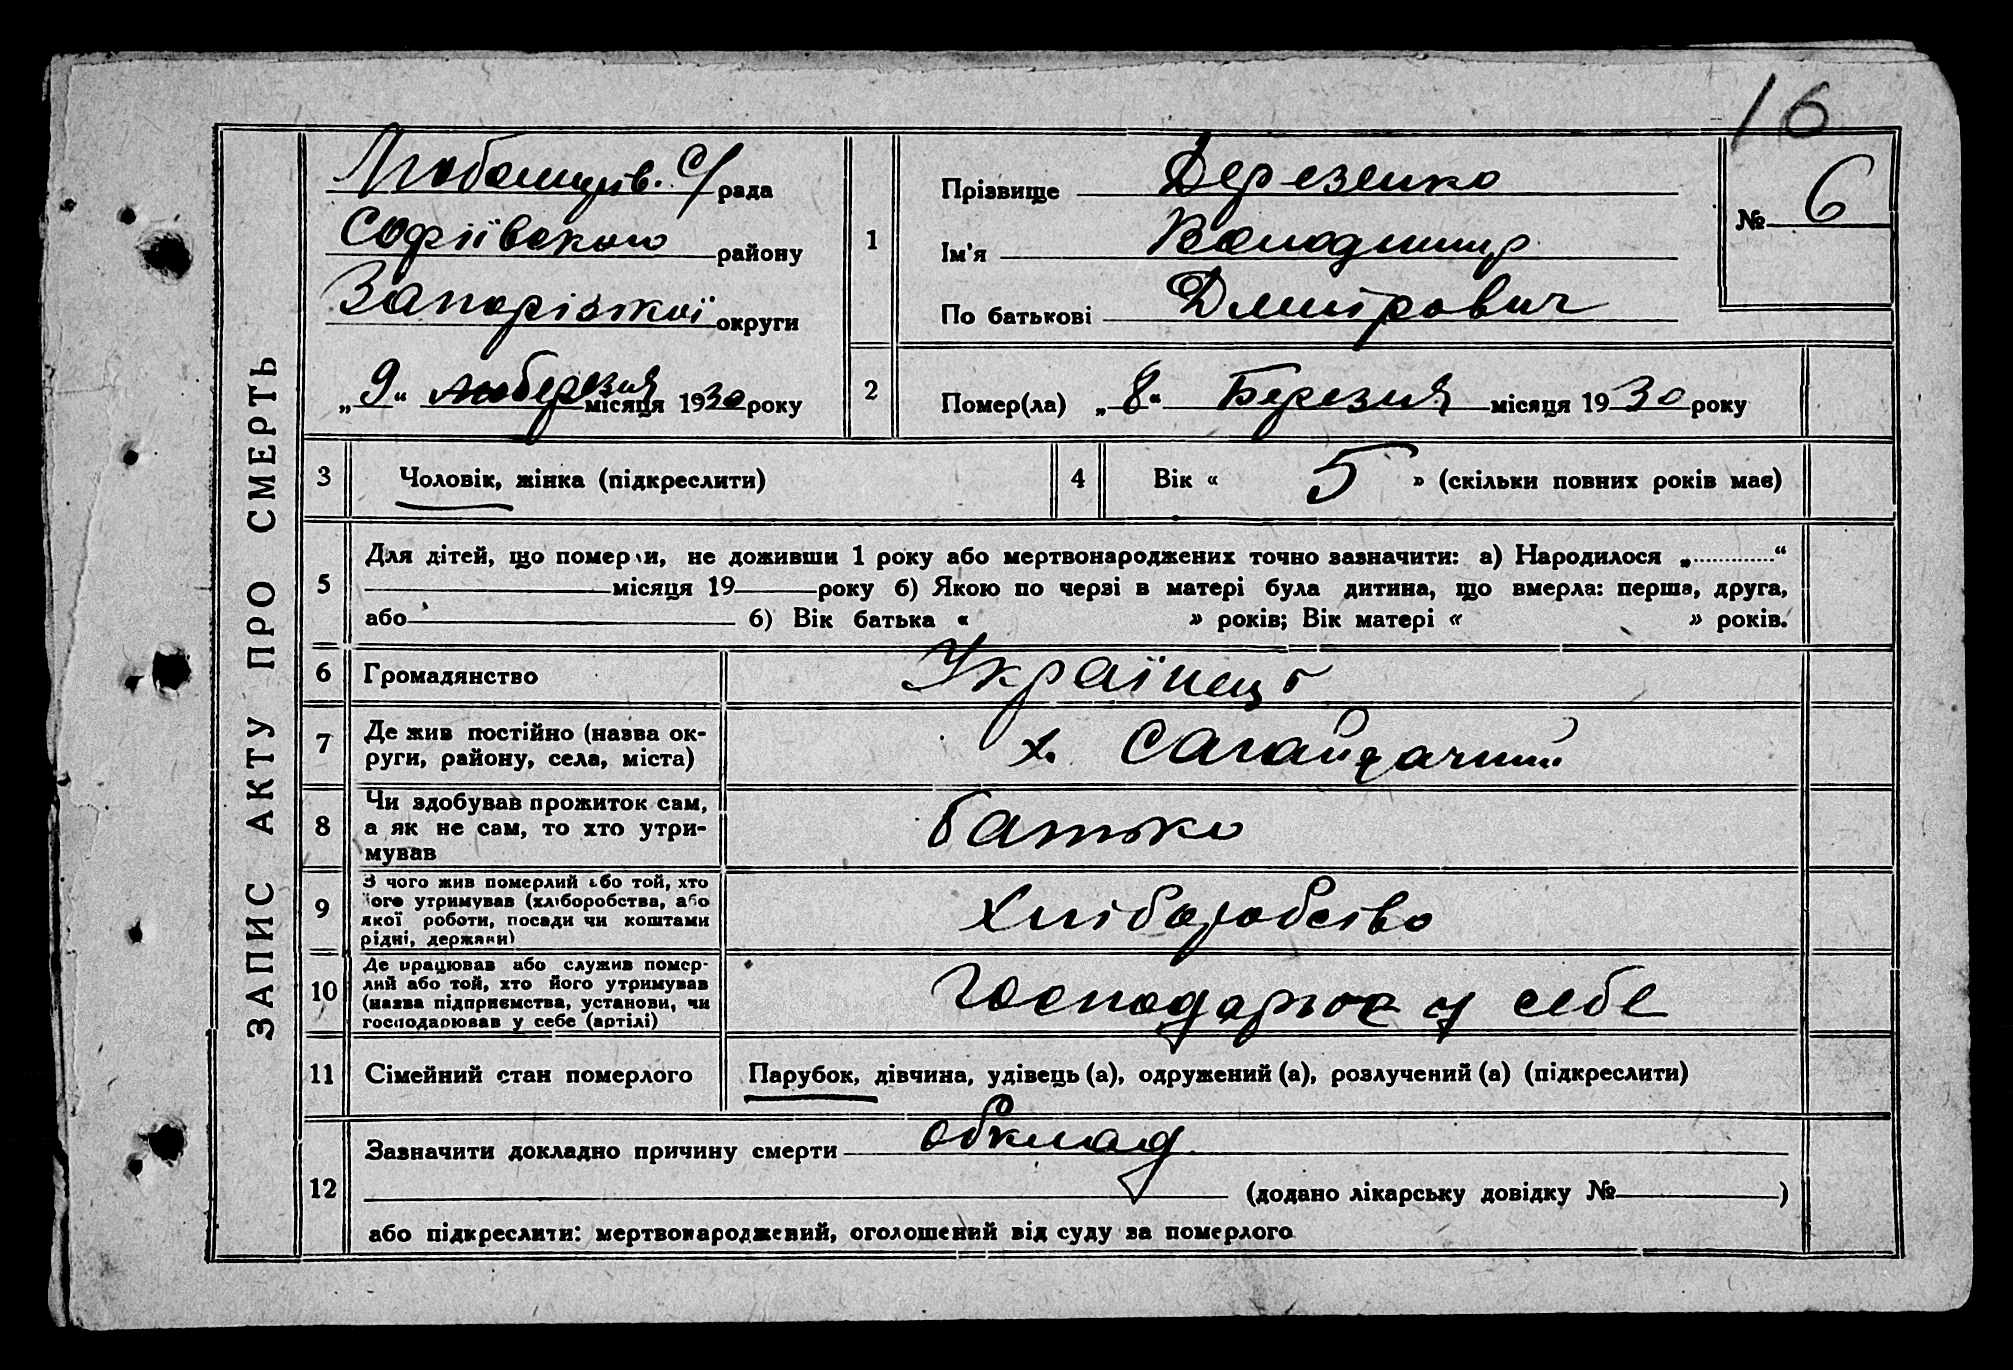 16
ЗАПИС АКТУ ПРО СМЕРТЬ
с/рада
Софіївського району
Запорізької округи
„9“ березня місяця 1930 року
1
Прізвище Дерезенко
Ім'я Володимир
По батькові Дмитрович
№ 6
2
Помер(ла) „8“ Березня місяця 1930 року
3
Чоловік, жінка (підкреслити)
4
Вік « 5 » (скільки повних років має)
5
Для дітей, що померли, не доживши 1 року або мертвонароджених точно зазначити: а) Народилося „ “
місяця 19 року б) Якою по черзі в матері була дитина, що вмерла: перша, друга,
або б) Вік батька « » років; Вік матері « » років.
6
Громадянство
Українець
7
Де жив постійно (назва ок-
руги, району, села, міста)
х. Сагайдачний
8
Чи здобував прожиток сам,
а як не сам, то хто утри-
мував
батько
9
З чого жив померлий або той, хто
його утримував (хліборобства, або
якої роботи, посади чи коштами
рідні, держави)
Хліборобство
10
Де працював або служив помер-
лий або той, хто його утримував
(назва підприємства, установи, чи
господарював у себе (артілі)
Господарює у себе
11
Сімейний стан померлого
Парубок, дівчина, удівець (а), одружений (а), розлучений (а) (підкреслити)
12
Зазначити докладно причину смерти обклад
(додано лікарську довідку № )
або підкреслити: мертвонароджений, оголошений від суду за померлого